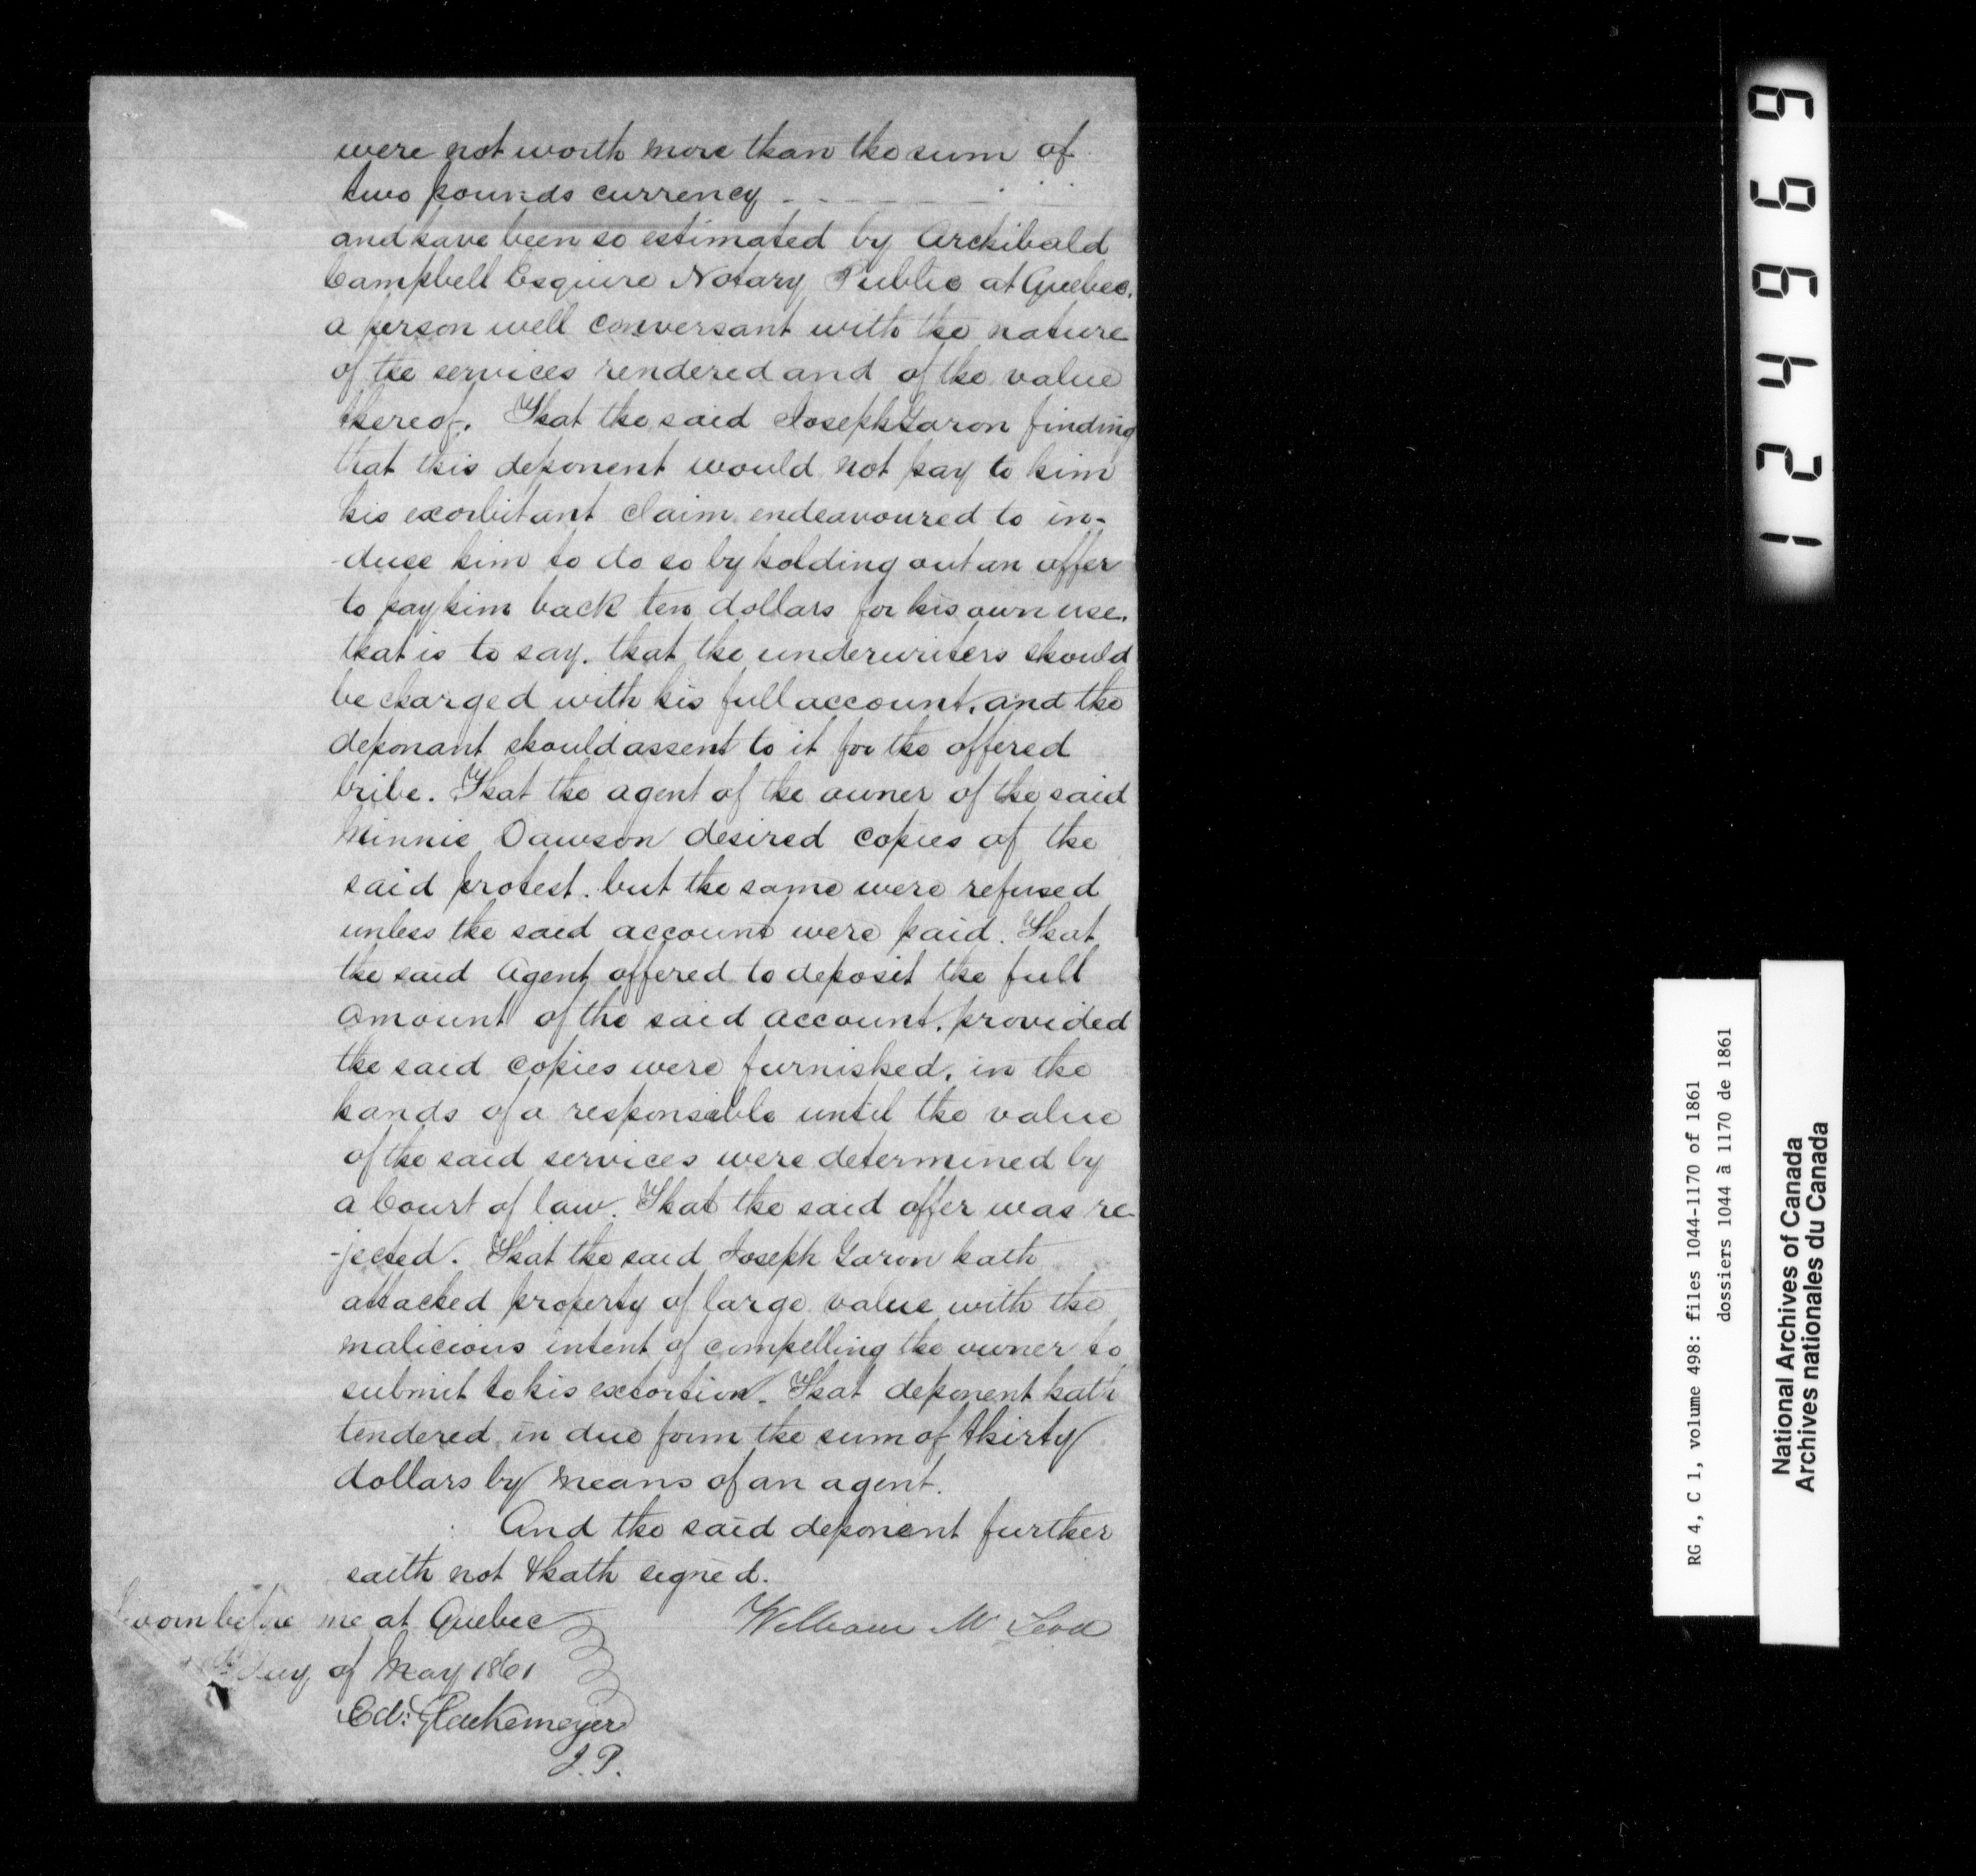 were not worth more than the sum of
two pounds currency
and have been so estimated by Archibald
Campbell Esquire Notary Public at Quebec.
a person well conversant with the nature
of the services rendered and of the value
thereof. That the said Joseph Garon finding
that this deponent would not pay to him
his exorbitant claim endeavoured to in-
-duce him to do so by holding out an offer
to pay him back ten dollars for his own use.
that is to say. that the underwriters should
be charged with his full account, and the
deponant should assent to it for the offered
bribe. That the agent of the owner of the said
Minnie Dawson desired copies of the
said protest. but the same were refused
unless the said account were paid. That
the said Agent offered to deposit the full
amount of the said account, provided
the said copies were furnished, in the
hands of a responsible until the value
of the said services were determined by
a Court of law. That the said offer was re-
-jected. That the said Joseph Garon hath
attacked property of large value with the
malicious intent of compelling the owner to
submit to his extortion. That deponent hath
tendered in due form the sum of thirty
dollars by means of an agent.
And the said deponent further
saith not & hath signed.
Sworn before me at Quebec
William McLeod
day of May 1861
Ed: Glackemeyer
J.P.
124969
RG 4, C 1, volume 498: files 1044-1170 of 1861
dossiers 1044 à 1170 de 1861
National Archives of Canada
Archives nationales du Canada